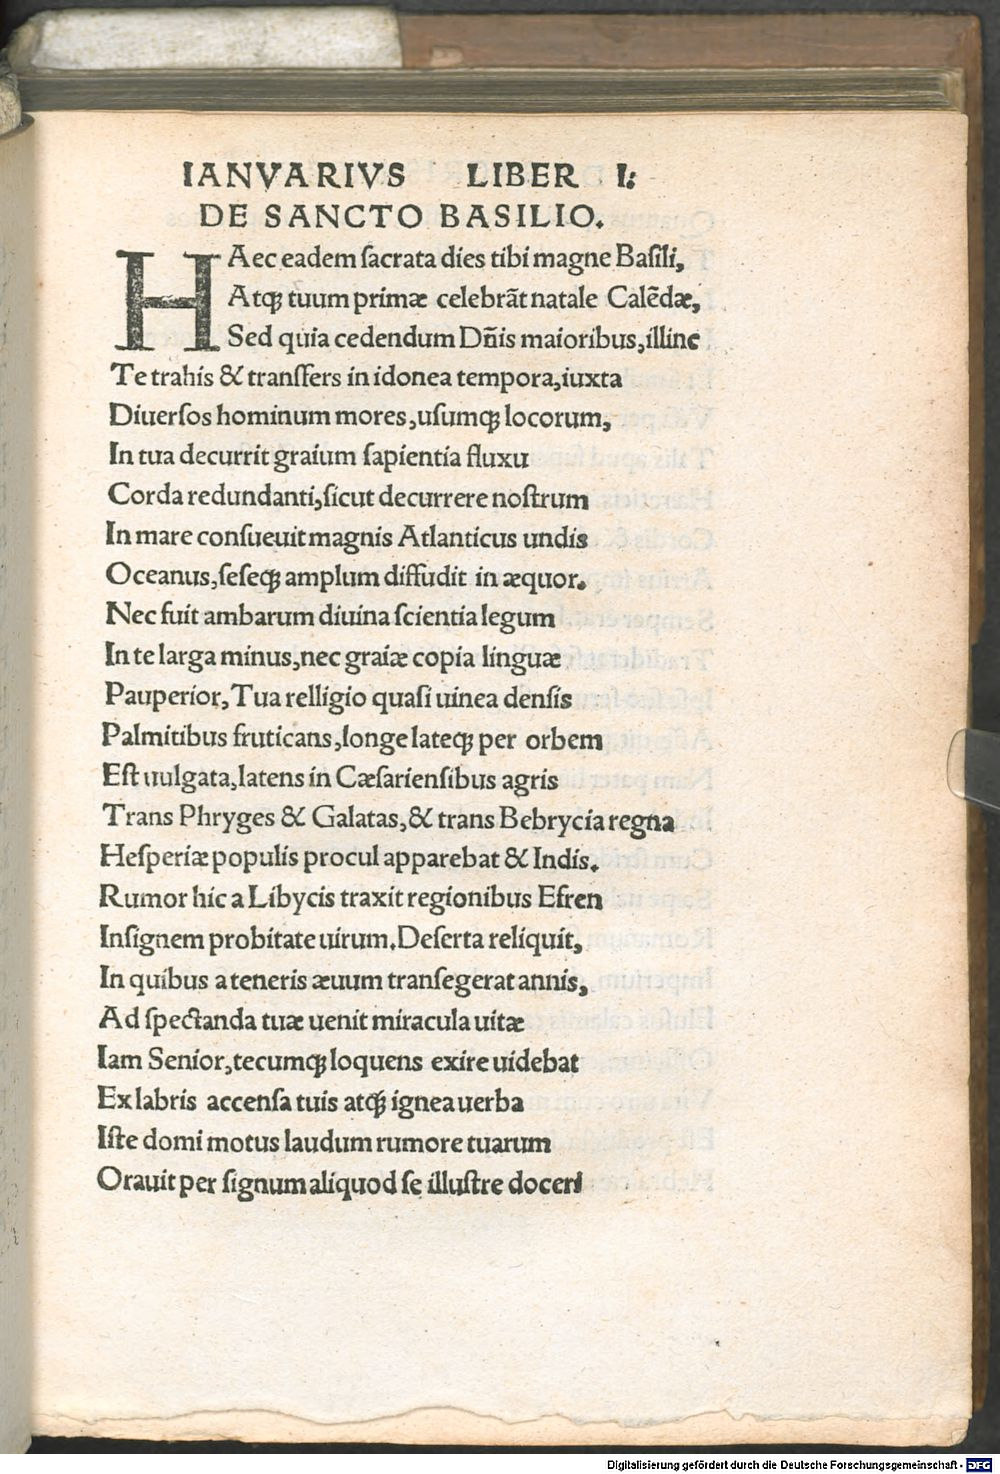 IANVARIVS LIBER I:
DE SANCTO BASILIO.
HAec eadem ſacrata dies tibi magne Baſili,
Atqꝫ tuum primæ celebrãt natale Calẽdæ,
Sed quia cedendum Dñis maioribus, illinc
Te trahis & tranſfers in idonea tempora, iuxta
Diuerſos hominum mores, uſumqꝫ locorum,
In tua decurrit graium ſapientia fluxu
Corda redundanti, ſicut decurrere noſtrum
In mare conſueuit magnis Atlanticus undis
Oceanus, ſeſeqꝫ amplum diffudit in æquor.
Nec fuit ambarum diuina ſcientia legum
In te larga minus, nec graiæ copia linguæ
Pauperior, Tua relligio quaſi uinea denſis
Palmitibus fruticans, longe lateqꝫ per orbem
Eſt uulgata, latens in Cæſarienſibus agris
Trans Phryges & Galatas, & trans Bebrycia regna
Heſperiæ populis procul apparebat & Indis.
Rumor hic a Libycis traxit regionibus Efren
Inſignem probitate uirum. Deſerta reliquit,
In quibus a teneris æuum tranſegerat annis,
Ad ſpectanda tuæ uenit miracula uitæ
Iam Senior, tecumqꝫ loquens exire uidebat
Ex labris accenſa tuis atqꝫ ignea uerba
Iſte domi motus laudum rumore tuarum
Orauit per ſignum aliquod ſe illuſtre doceri
Digitalisierung gefördert durch die Deutsche Forschungsgemeinschaft - DFG